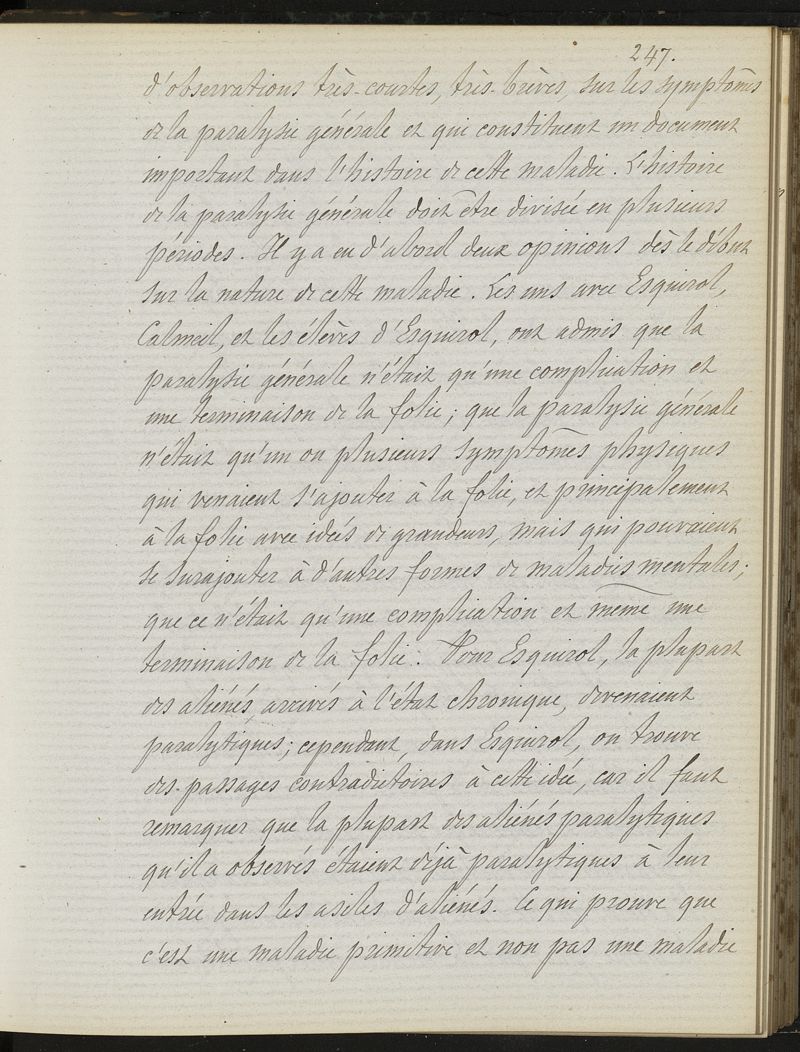 247.
d'observations très-courtes, très-brèves, sur les symptômes
de la paralysie générale et qui constituent un document
important dans l'histoire de cette maladie. L'histoire
de la paralysie générale doit être divisée en plusieurs
périodes. Il y a eu d'abord deux opinions dès le début
sur la nature de cette maladie. Les uns avec Esquirol,
Calmeil, et les élèves d'Esquirol, ont admis que la
paralysie générale n'était qu'une complication et
une terminaison de la folie; que la paralysie générale
n'était qu'un ou plusieurs symptômes physiques
qui venaient s'ajouter à la folie, et principalement
à la folie avec idées de grandeurs, mais qui pouvaient
se surajouter à d'autres formes de maladies mentales;
que ce n'était qu'une complication et même une
terminaison de la folie. Pour Esquirol, la plupart
des aliénés, arrivés à l'état chronique, devenaient
paralytiques; cependant, dans Esquirol, on trouve
des passages contradictoires à cette idée, car il faut
remarquer que la plupart des aliénés paralytiques
qu'il a observés étaient déjà paralytiques à leur
entrée dans les asiles d'aliénés. Ce qui prouve que
c'est une maladie primitive et non pas une maladie